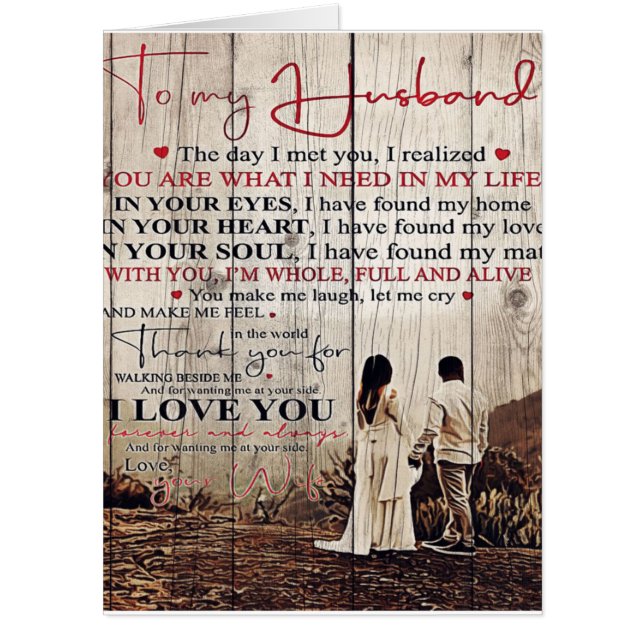 To my Husband
The day I met you, I realized
YOU ARE WHAT I NEED IN MY LIFE
IN YOUR EYES, I have found my home
IN YOUR HEART, I have found my love
IN YOUR SOUL, I have found my mat
WITH YOU, I'M WHOLE, FULL AND ALIVE
You make me laugh, let me cry
AND MAKE ME FEEL
in the world
Thank you for
WALKING BESIDE ME
And for wanting me at your side.
I LOVE YOU
forever and always
And for wanting me at your side.
Love,
your Wife